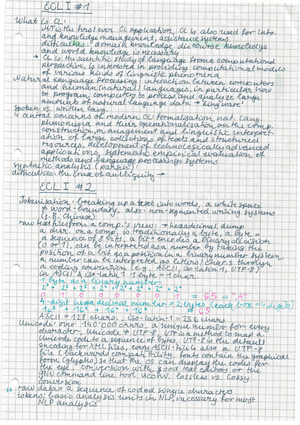 ECLI #1
What is CL?
MT is the first ever CL application, CL is also used for info.
and knowledge management, assistive systems
difficulties: domain knowledge, discourse knowledge
and world knowledge is necessary
→ CL is the scientific study of language from computational
perspective, is interested in providing computational models
of various kinds of linguistic phenomena
Natural language Processing: interaction between computers
and human (natural) languages, in particular how
to program computers to process and analyze large
amounts of natural language data
spoken vs. written lang.
4 central concerns of modern CL: formalization nat. lang.
phenomena and their operationalisation on the comp.,
construction, management and linguistic interpret-
ation of large collections of texts and structured
resources, development of technologically advanced
applications, systematic empirical evaluation of
methods and language processing systems
syntactic analysis (parsing)
difficulties: the level of ambiguity →
ECLI #2
Tokenisation - breaking up a text into words, a white space
is a word boundary, also: non-segmented writing systems
(e.g. Chinese)
raw text files from a comp's view → hexadecimal dump
a digit on a comp. is traditionally a byte, a byte =
a sequence of 8 bits, a bit = encodes a binary decision
(0 or 1), can be interpreted as a number by taking the
position of a bit as a position in a binary number system.
A number can be interpreted as letters/chars through
a coding convention (e.g. ASCII, iso-latin-1, UTF-8)
in ASCII & iso-latin-1 1 byte = 1 char
1 byte as a binary number:
0 1 0 0 0 0 0 1 = 65 = "A"
4-digit hexadecimal number = 2 bytes (each box = 4 digits)
ASCII = 128 chars, iso-latin-1 = 256 chars
Unicode: over 140'000 chars, a unique number for every
character, Unicode ≠ UTF-8, UTF is a method to save a
Unicode code to a sequence of bytes, UTF-8 is the default
encoding for XML files, every ASCII-file is also an UTF-8-
file (backwards compatibility), fonts contain the graphical
form (glyphs) so that the OS can display the codes for
the eye, conversion with good text editors or the
GNU command line tool iconv, lossless vs. lossy
conversion
raw data: a sequence of coded single characters
tokens: basic analysis units in NLP, necessary for most
NLP analysis